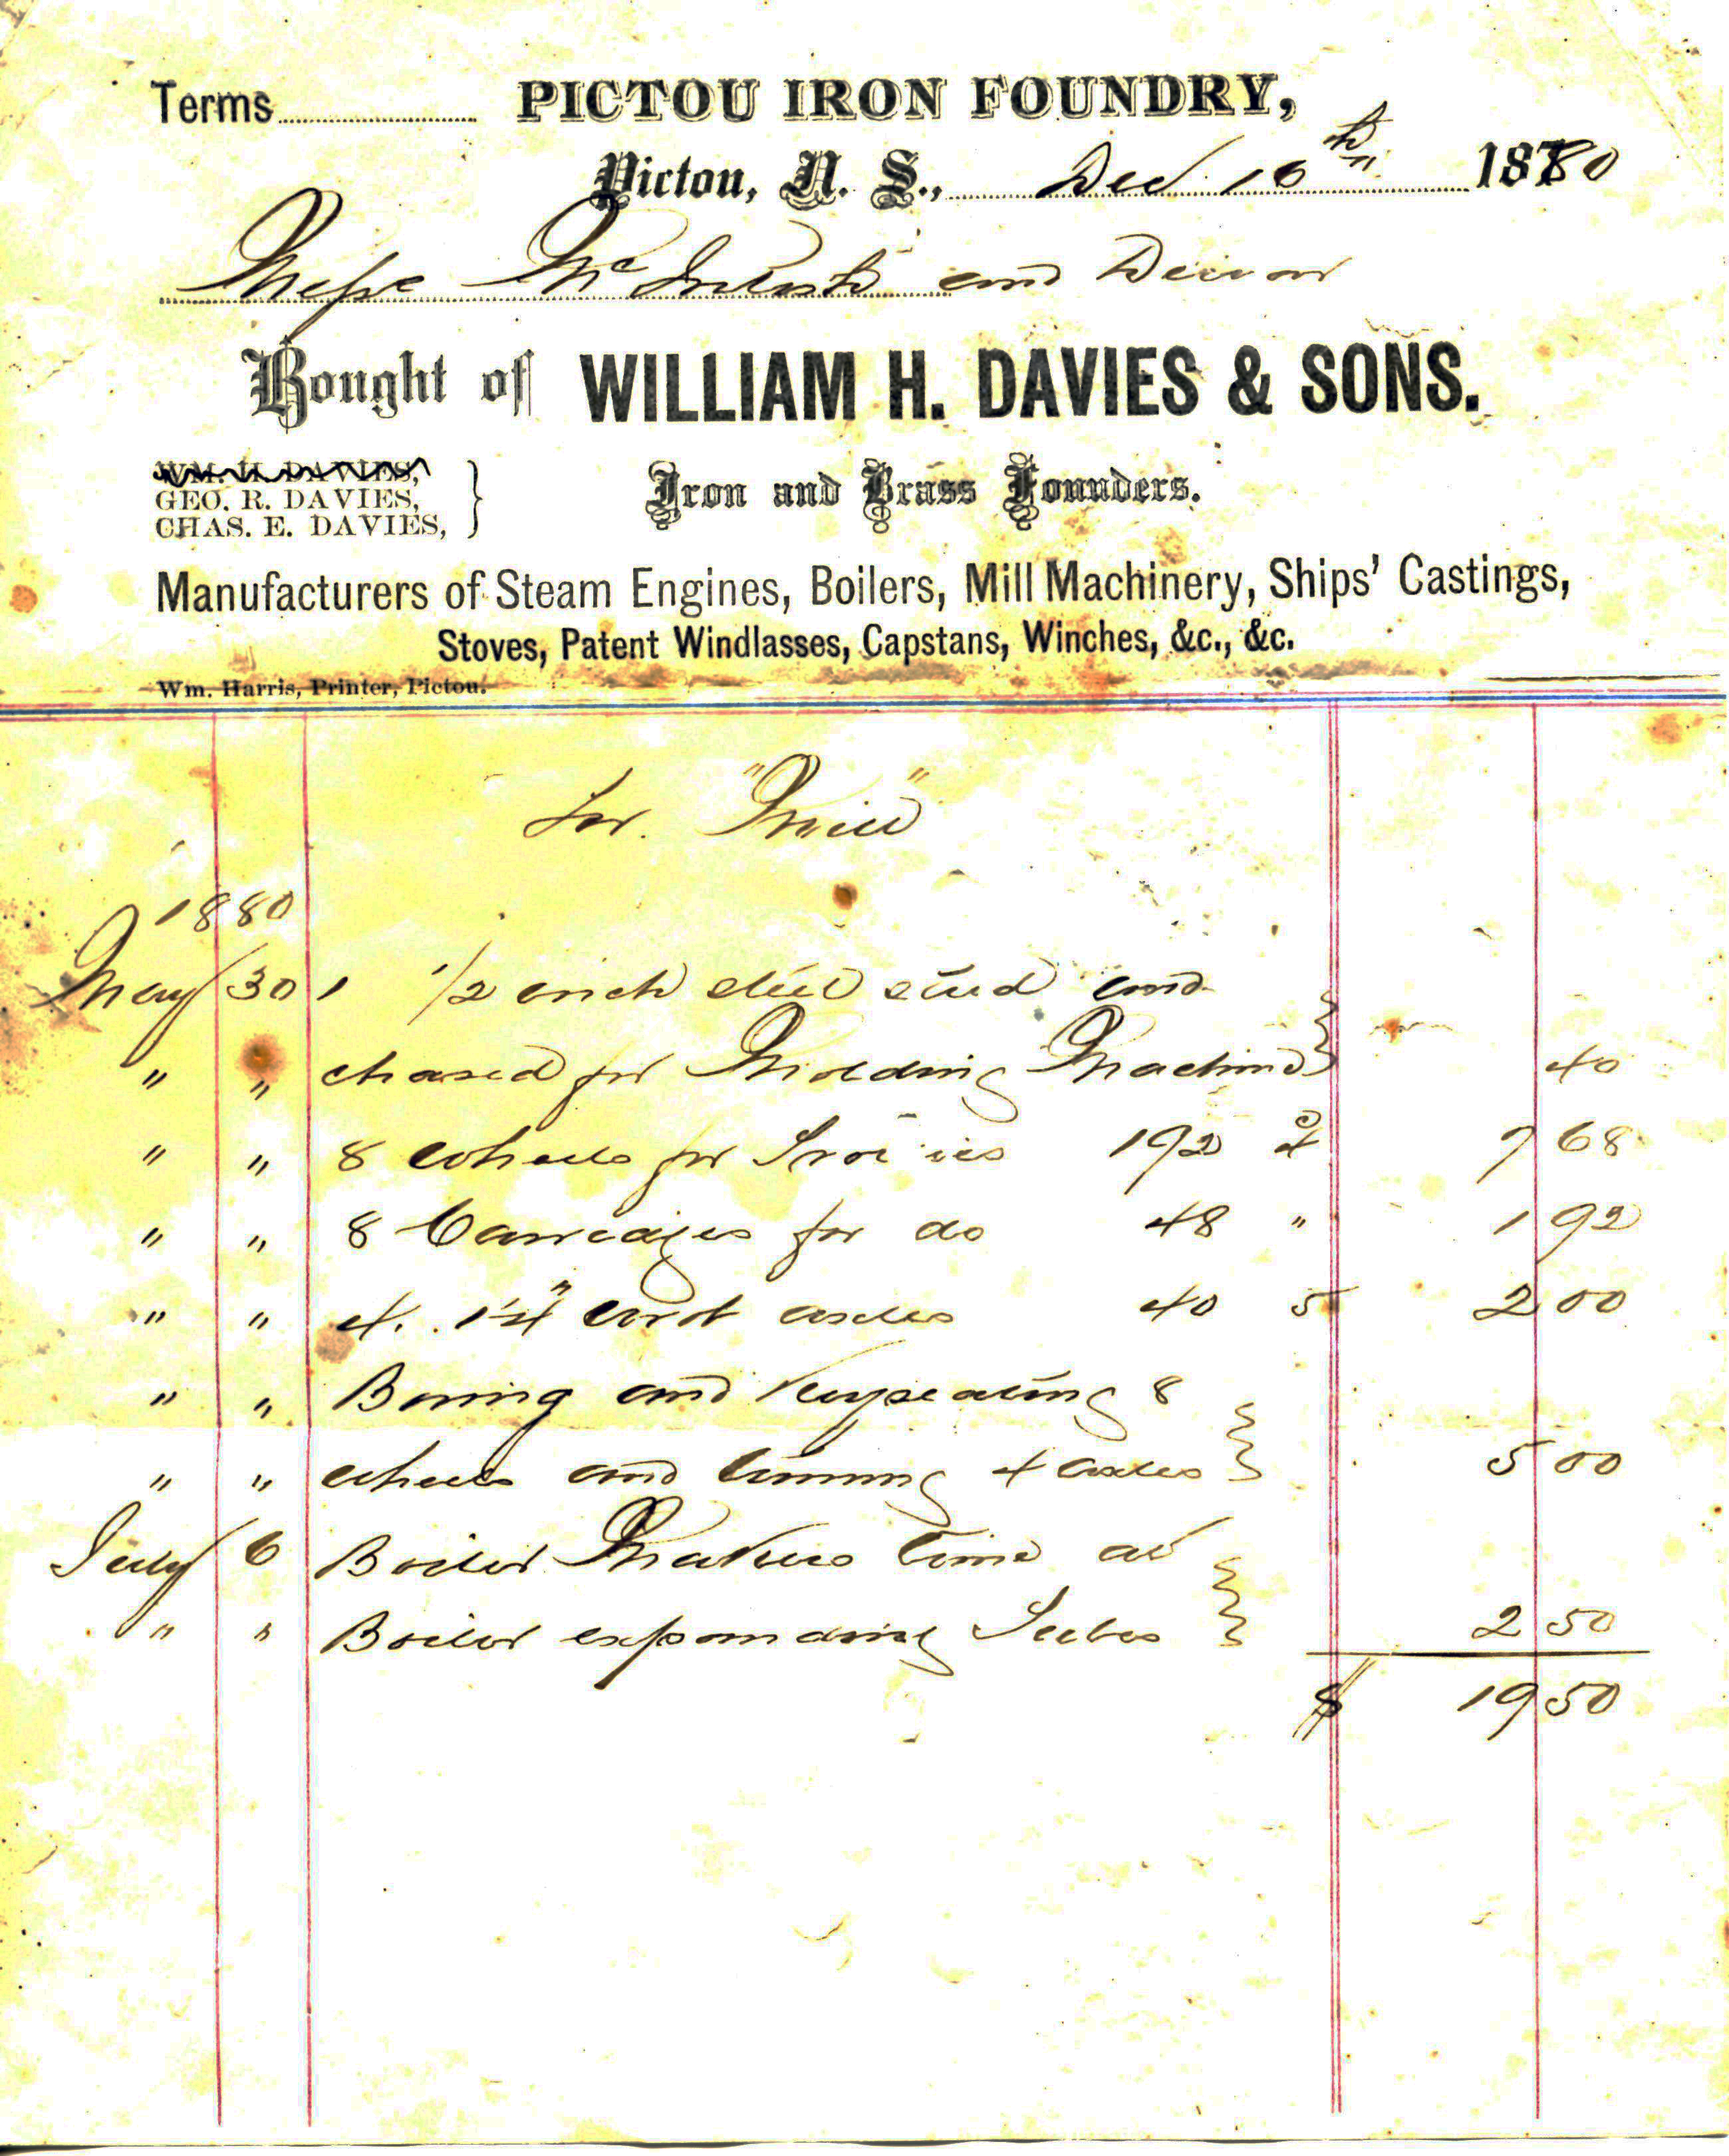 Terms PICTOU IRON FOUNDRY,
Pictou, N. S., Dec 16th 1880
Messrs McIntosh and
Bought of WILLIAM H. DAVIES & SONS.
WM. H. DAVIES,
GEO. R. DAVIES,
CHAS. E. DAVIES,
Iron and Brass Founders.
Manufacturers of Steam Engines, Boilers, Mill Machinery, Ships' Castings,
Stoves, Patent Windlasses, Capstans, Winches, &c., &c.
Wm. Harris, Printer, Pictou.
for "Mill"
1880
May 30 1 1/2 inch steel stud and
" " chased for Molding Machine 40
" " 8 Wheels for 192 4c 7 68
" " 8 Carriages for do 48 " 1 92
" " 4. 1¼" axles 40 5 2 00
" " Boring and Keyseating 8
" " wheels and turning 4 axles 5 00
July 6 Boiler Makers time at
" " Boiler expanding Tubes 2 50
$ 19 50